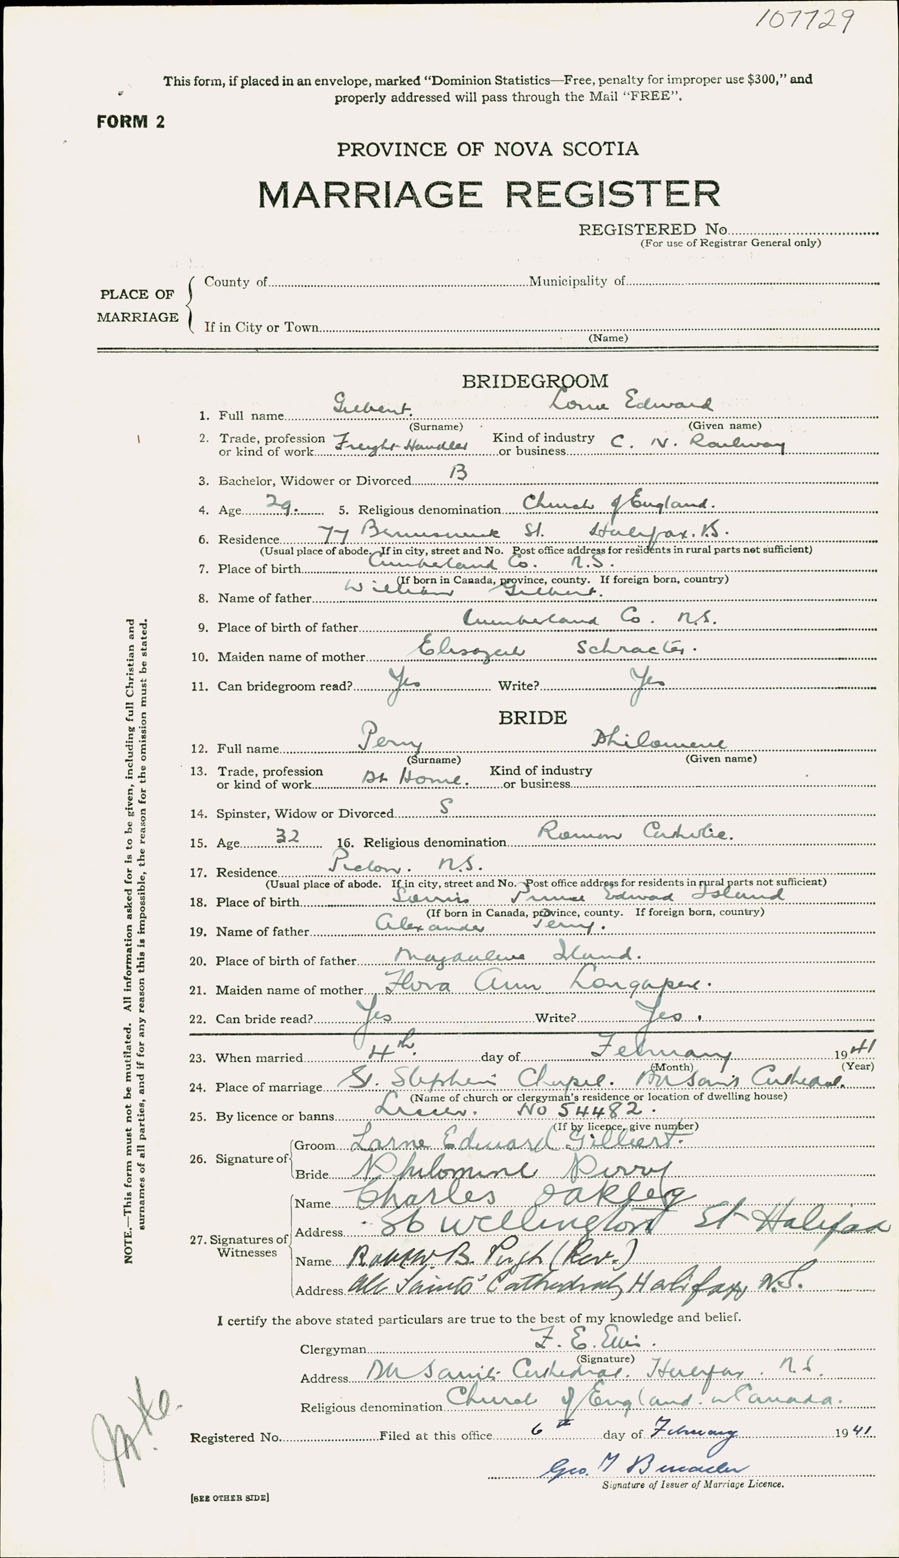 107729
This form, if placed in an envelope, marked "Dominion Statistics—Free, penalty for improper use $300," and
properly addressed will pass through the Mail "FREE".
FORM 2
PROVINCE OF NOVA SCOTIA
MARRIAGE REGISTER
REGISTERED No
(For use of Registrar General only)
PLACE OF MARRIAGE
County of Municipality of
If in City or Town
(Name)
BRIDEGROOM
1. Full name Gilbert. Lorne Edward
(Surname) (Given name)
2. Trade, profession or kind of work Freight Handler Kind of industry or business C. N. Railway
3. Bachelor, Widower or Divorced B
4. Age 29. 5. Religious denomination Church of England.
6. Residence 77 Brunswick St. Halifax. N.S.
(Usual place of abode. If in city, street and No. Post office address for residents in rural parts not sufficient)
7. Place of birth Cumberland Co. N.S.
(If born in Canada, province, county. If foreign born, country)
8. Name of father William Gilbert.
9. Place of birth of father Cumberland Co. N.S.
10. Maiden name of mother
11. Can bridegroom read? Yes Write? Yes
BRIDE
12. Full name Perry Philomene
(Surname) (Given name)
13. Trade, profession or kind of work At Home. Kind of industry or business
14. Spinster, Widow or Divorced S
15. Age 32 16. Religious denomination Roman Catholic.
17. Residence Pictou. N.S.
(Usual place of abode. If in city, street and No. Post office address for residents in rural parts not sufficient)
18. Place of birth Souris Prince Edward Island
(If born in Canada, province, county. If foreign born, country)
19. Name of father Alexander Perry.
20. Place of birth of father Magdalene Island.
21. Maiden name of mother Flora Ann
22. Can bride read? Yes Write? Yes.
23. When married 4th. day of February 1941
(Month) (Year)
24. Place of marriage St. Stephen's Chapel. All Saints Cathedral.
(Name of church or clergyman's residence or location of dwelling house)
25. By licence or banns No 54482.
(If by licence, give number)
26. Signature of Groom Larne Edward Gilbert.
Bride Philomine Perry
27. Signatures of Witnesses Name Charles Oakley
Address 86 Wellington St Halifax
Name B. Pugh (Rev.)
Address All Saints' Cathedral, Halifax, N.S.
I certify the above stated particulars are true to the best of my knowledge and belief.
Clergyman F. E. Ellis.
(Signature)
Address All Saints Cathedral. Halifax. N.S.
Religious denomination Church of England in Canada.
Registered No. Filed at this office 6th day of February 1941
Geo. M
Signature of Issuer of Marriage Licence.
[SEE OTHER SIDE]
NOTE.—This form must not be mutilated. All information asked for is to be given, including full Christian and
surnames of all parties, and if for any reason this is impossible, the reason for the omission must be stated.